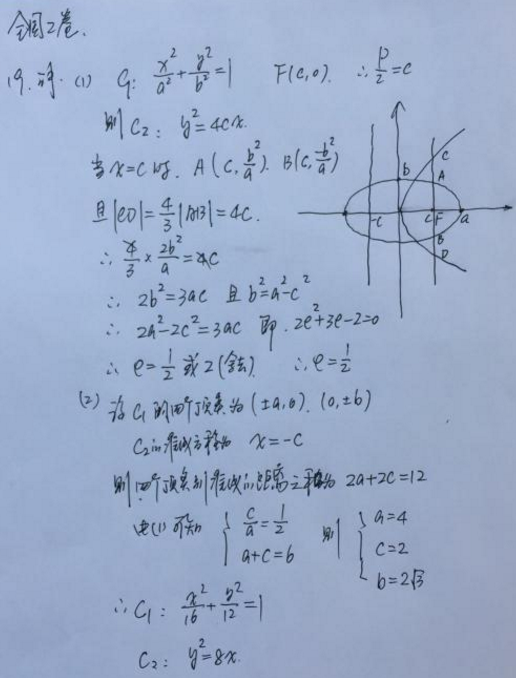 全国2卷.
19.解.(1) C₁: x²/a²+y²/b²=1 F(c,0). ∴ p/2=c
则 C₂: y²=4cx.
当x=c时. A(c, b²/a). B(c, b²/a)
且|CD|=4/3|AB|=4c.
∴ 4/3×2b²/a=4c
∴ 2b²=3ac 且 b²=a²-c²
∴ 2a²-2c²=3ac 即. 2e²+3e-2=0
∴ e=1/2 或 2(舍去). ∴ e=1/2
b
C
A
-c
c
F
a
B
D
(2) 设C₁的四个顶点为(±a,0). (0,±b)
C₂的准线方程为 x=-c
则四个顶点到准线的距离之和为 2a+2c=12
由(1)可知 { c/a=1/2 则 { a=4
a+c=6 c=2
b=2√3
∴ C₁: x²/16+y²/12=1
C₂: y²=8x.